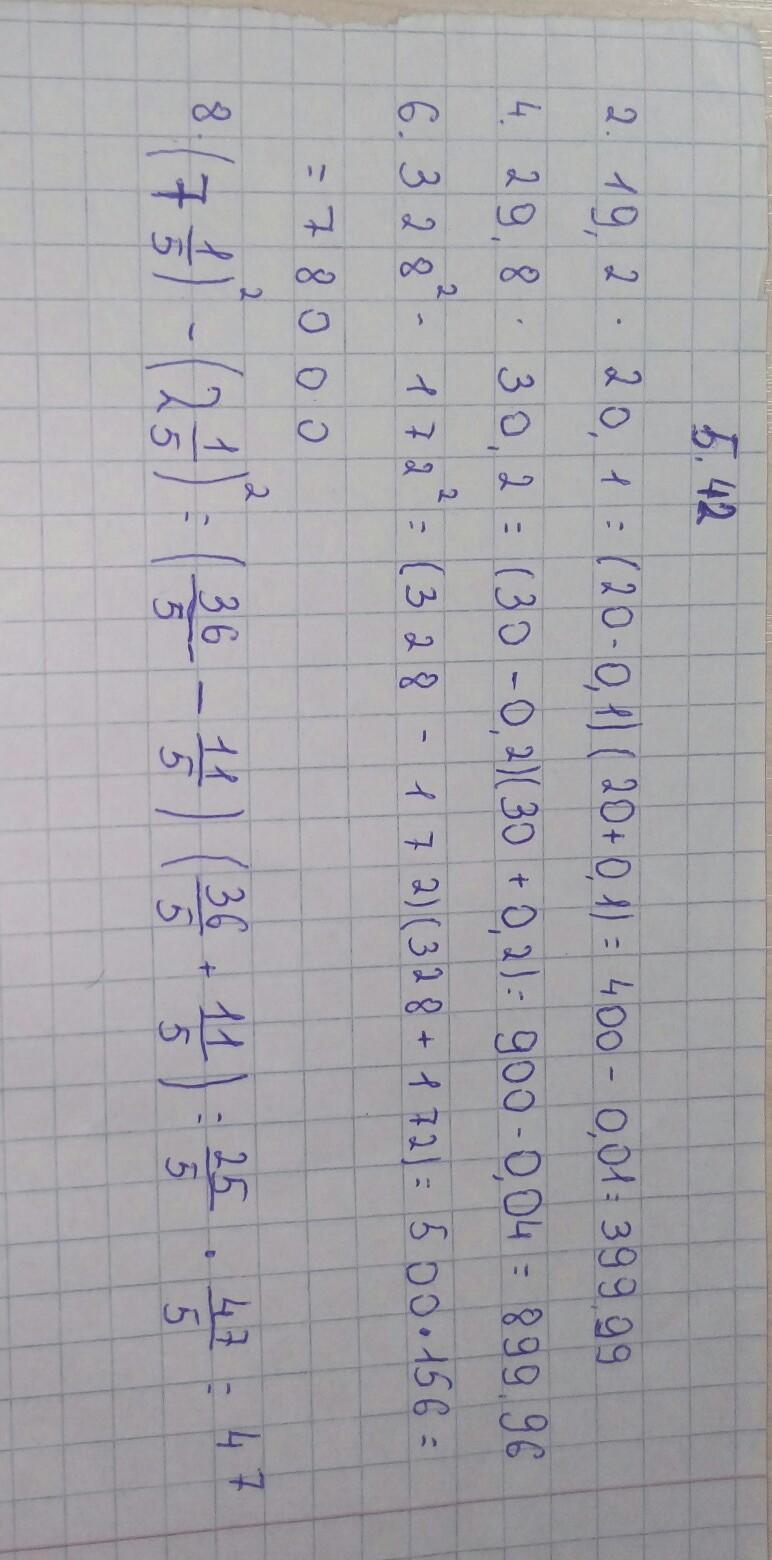 5.42
2. 19,2 · 20,1 = (20-0,1)(20+0,1) = 400 - 0,01 = 399,99
4. 29,8 · 30,2 = (30-0,2)(30+0,2) = 900 - 0,04 = 899,96
6. 328² - 172² = (328 - 172)(328 + 172) = 500 · 156 =
= 78000
8. (7 1/5)² - (2 1/5)² = (36/5 - 11/5) (36/5 + 11/5) = 25/5 · 47/5 = 47